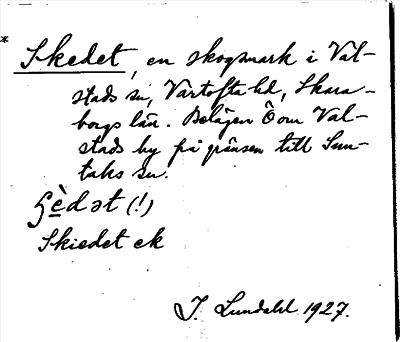 * Skedet, en skogsmark i Val-
stads sn, Vartofta hd, Skara-
borgs län. Belägen Ö om Val-
stads by på gränsen till Sun-
taks sn.
ʂèdət (!)
Skiedet ek
J. Lundahl 1927.